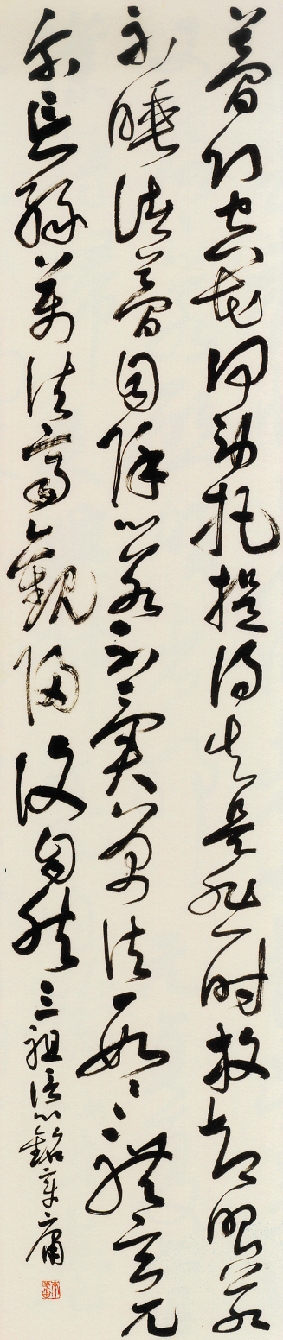 夢幻空花何勞把捉得失是非一時放却眼若
不睡諸夢自除心若不異萬法一如〻〻體玄兀
尔忘緣萬法齊觀歸復自然 三祖信心銘